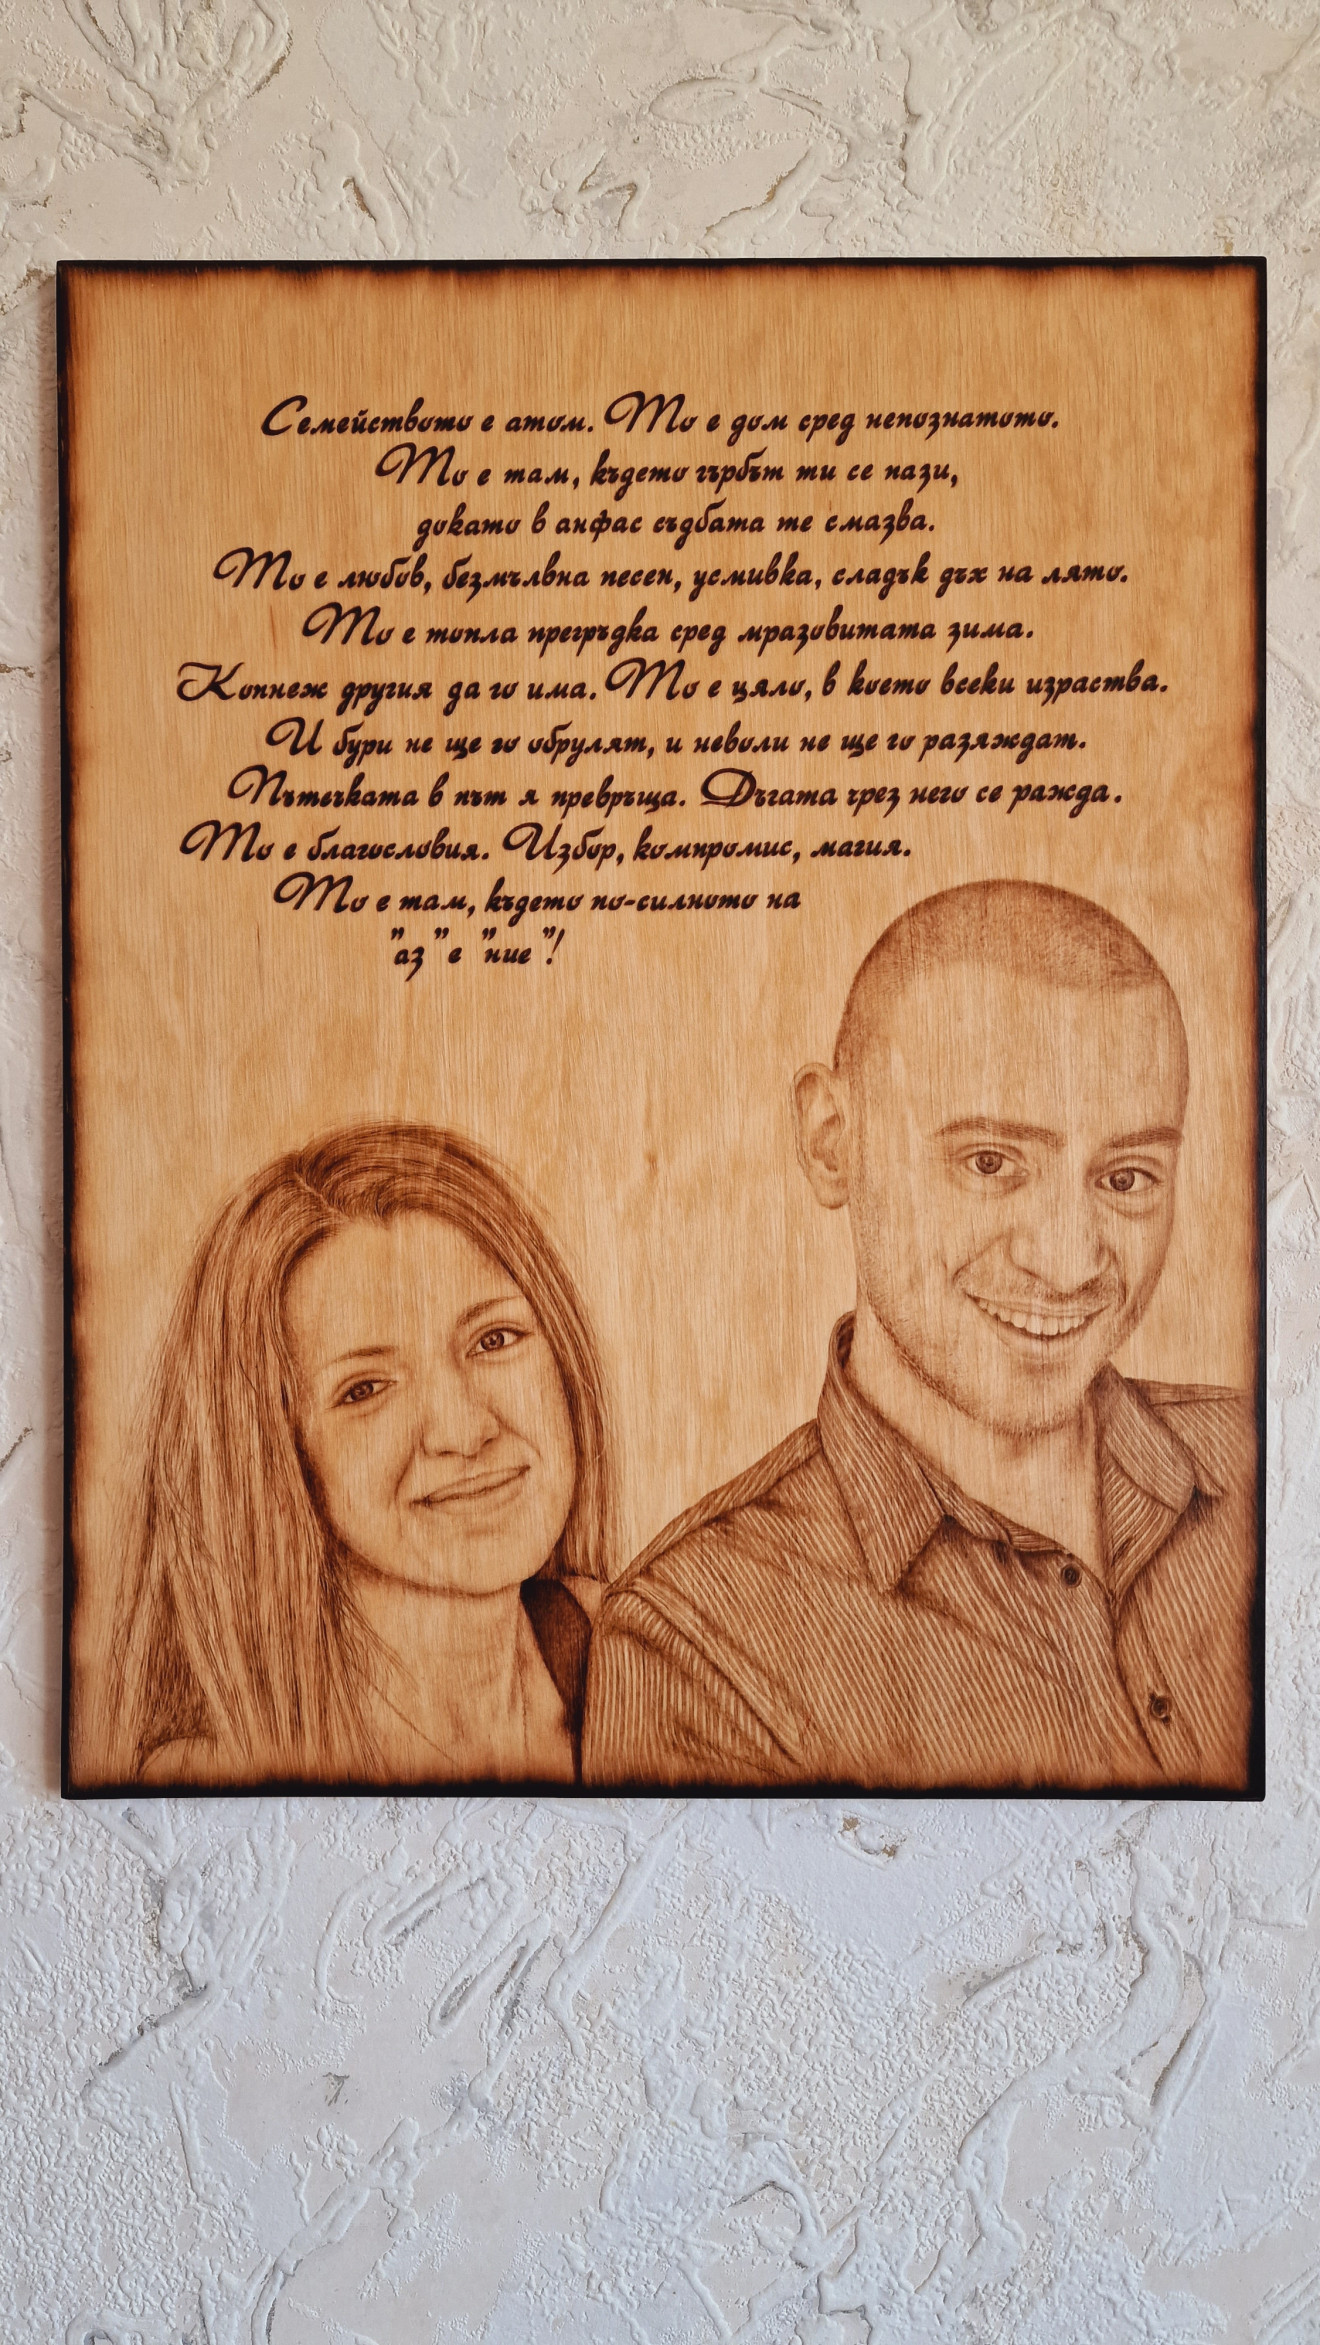 Семейството е атом. То е дом сред непознатото.
То е там, където гърбът ти се пази,
докато в анфас съдбата те смазва.
То е любов, безмълвна песен, усмивка, сладък дъх на лято.
То е топла прегръдка сред мразовитата зима.
Копнеж другия да го има. То е цяло, в което всеки израства.
И бури не ще го обрулят, и неволи не ще го разяждат.
Пътечката в път я превръща. Дъгата чрез него се ражда.
То е благословия. Избор, компромис, магия.
То е там, където по-силното на
"аз" е "ние"!